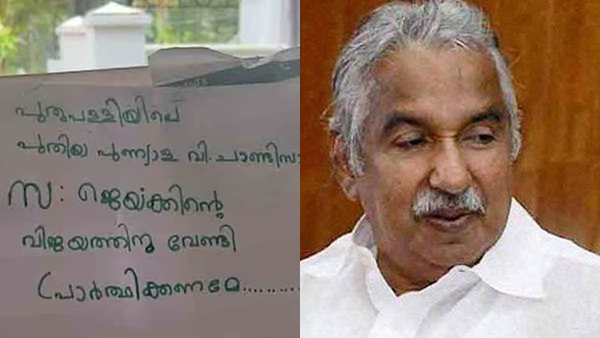 പുതുപള്ളിയിലെ
പുതിയ പുണ്യാള വി. ചാണ്ടിസാ
സ: ജെയ്ക്കിന്റെ
വിജയത്തിനു വേണ്ടി
പ്രാർത്ഥിക്കണമേ..........